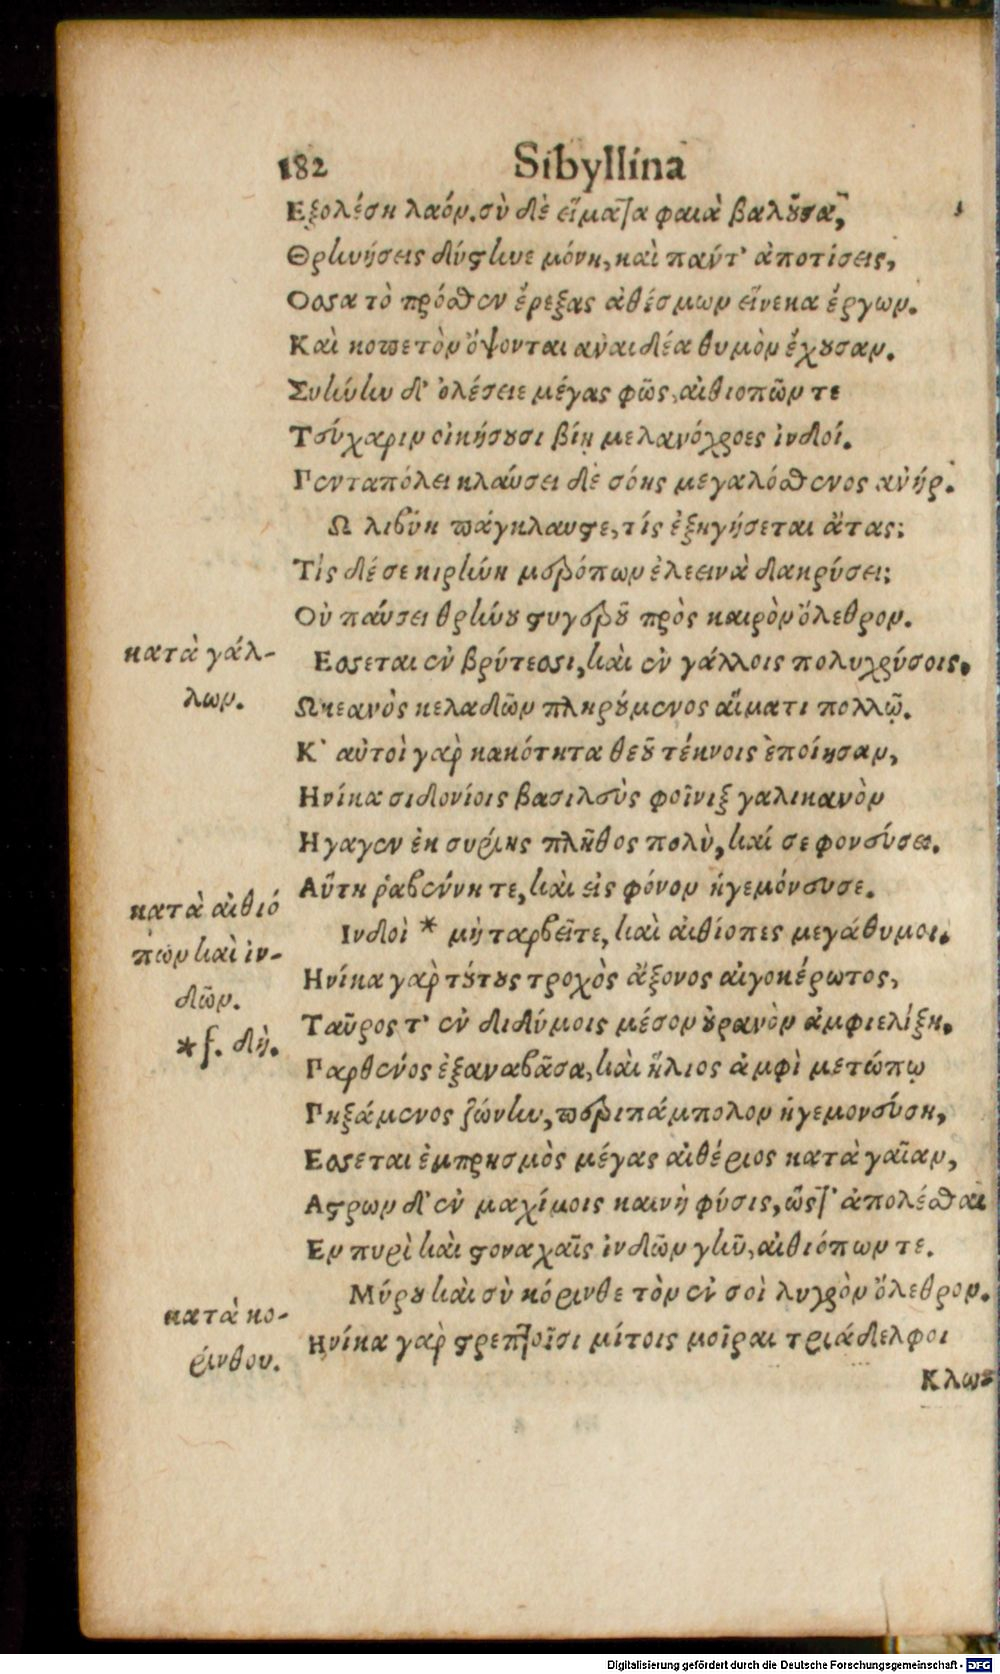 182 Sibyllina
Εξολέση λαόν. σὺ δὲ εἵματα φαιὰ βαλοῦσα,
Θρηνήσεις δύστηνε μόνη, καὶ παύτ' ἀποτίσεις,
Οσσα τὸ πρόσθεν ἔρεξας ἀθέσμων εἵνεκα ἔργων.
Καὶ κοπετὸν ὄψονται ἀναιδέα θυμὸν ἔχουσαν.
Συήνην δ' ὀλέσειε μέγας φῶς, αἰθιοπῶν τε
Τεύχαριν οἰκήσουσι βίῃ μελανόχροες ἰνδοί.
Πενταπόλει κλαύσει δὲ σόης μεγαλόσθενος ἀνήρ.
Ω λιβύη πάγκλαυστε, τίς ἐξηγήσεται ἄτας;
Τίς δέ σε κιρήνη μερόπων ἐλεεινὰ δακρύσει;
Οὐ παύσει θρήνου στυγεροῦ πρὸς καιρὸν ὄλεθρον.
κατὰ γάλ-
λων.
Εσσεται ἐν βρύτεσσι, καὶ ἐν γάλλοις πολυχρύσοις.
Ωκεανὸς κελαδῶν πληρούμενος αἵματι πολλῷ.
Κ' αὐτοὶ γὰρ κακότητα θεοῦ τέκνοις ἐποίησαν,
Ηνίκα σιδονίοις βασιλεὺς φοῖνιξ γαλικανὸν
Ηγαγεν ἐκ συρίης πλῆθος πολὺ, καί σε φονεύσει.
Αὕτη ῥαβέννη τε, καὶ εἰς φόνον ἡγεμόνευσε.
κατὰ αἰθιό
πων καὶ ἰν-
δῶν.
*f. δὴ.
Ινδοὶ * μὴ ταρβεῖτε, καὶ αἰθίοπες μεγάθυμοι.
Ηνίκα γὰρ τούτους τροχὸς ἄξονος αἰγοκέρωτος,
Ταῦρος τ' ἐν διδύμοις μέσον οὐρανὸν ἀμφιελίξη.
Παρθένος ἐξαναβᾶσα, καὶ ἥλιος ἀμφὶ μετώπῳ
Πηξάμενος ζώνην, περιπάμπολον ἡγεμονεύση,
Εσσεται ἐμπρησμὸς μέγας αἰθέριος κατὰ γαῖαν,
Αστρων δ' ἐν μαχίμοις καινὴ φύσις, ὥστ' ἀπολέσθαι
Εν πυρὶ καὶ στοναχαῖς ἰνδῶν γῆν, αἰθιόπων τε.
κατὰ κο-
ρίνθου.
Μύρου καὶ σὺ κόρινθε τὸν ἐν σοὶ λυγρὸν ὄλεθρον.
Ηνίκα γὰρ στρεπτοῖσι μίτοις μοῖραι τριάδελφοι
Κλω=
Digitalisierung gefördert durch die Deutsche Forschungsgemeinschaft - DFG